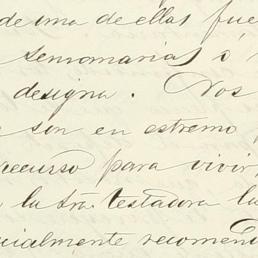 de una de ellas fue
semomarias ó
designa. Nos
e son en estremo
recurso para vivir,
a la trá. testadora la
cialmente recomen